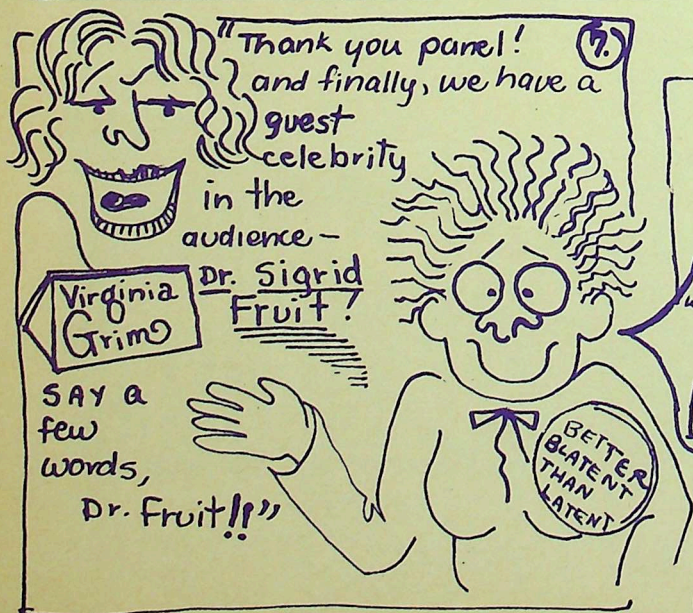 "Thank you panel!
7.
and finally, we have a
guest
celebrity
in the
audience –
Dr. Sigrid
Fruit!
Virginia
Grim
SAY a
few
words,
Dr. Fruit!!"
BETTER
BLATENT
THAN
LATENT